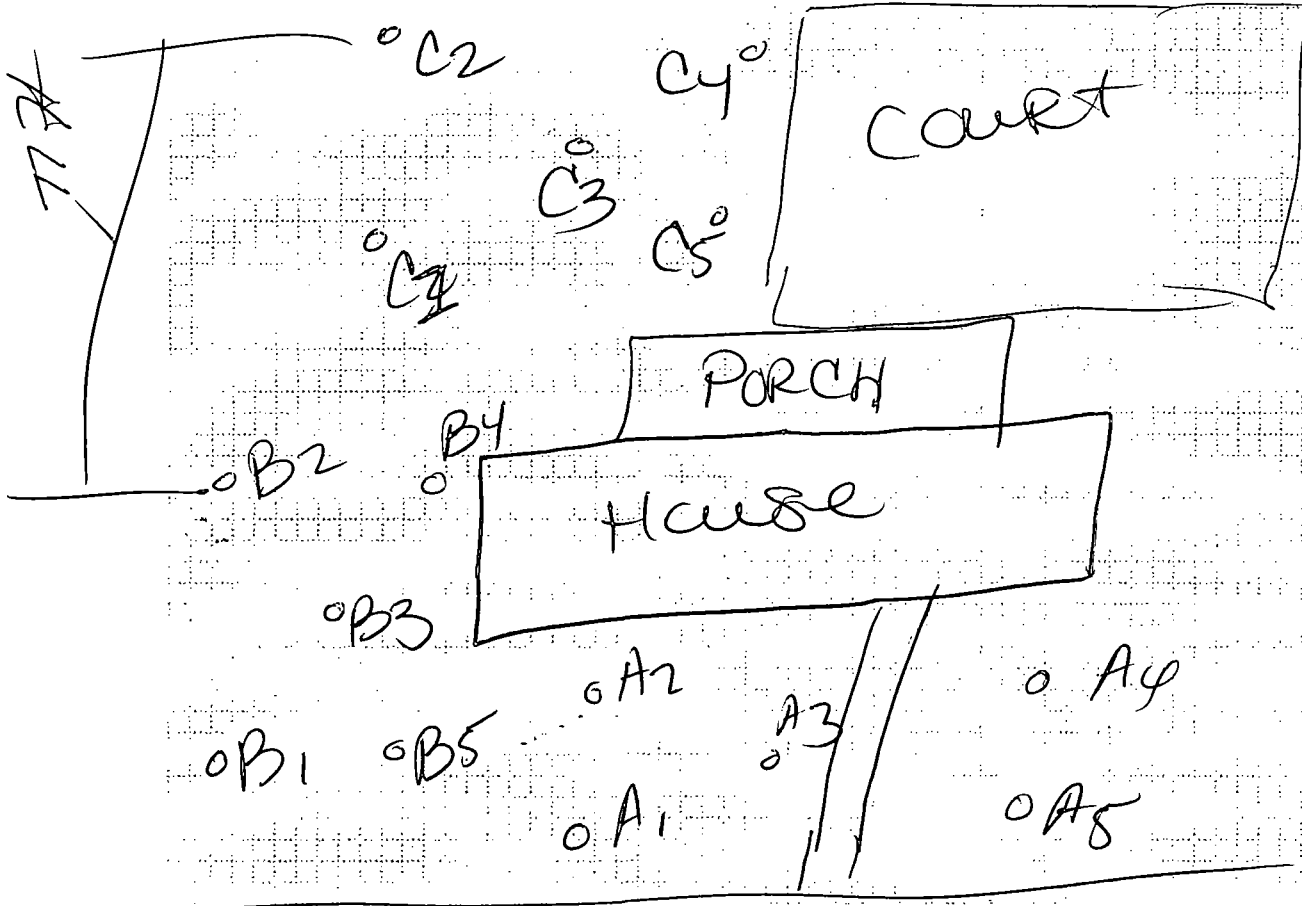 C2
C4
COURT
C3
C5
PORCH
B4
B2
House
B3
A2
A4
A3
B1
B5
A1
A5